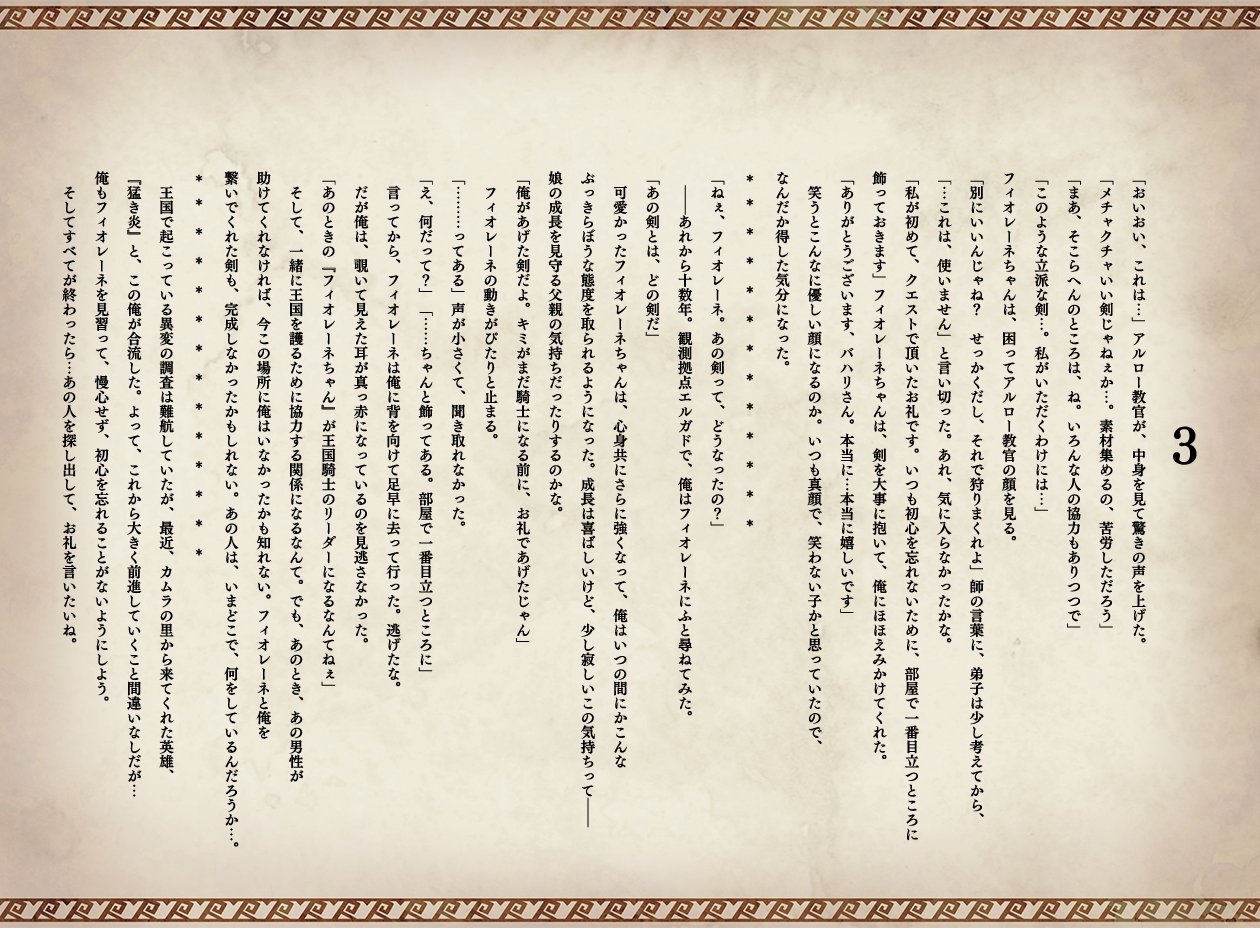 3
「おいおい、これは…」アルロー教官が、中身を見て驚きの声を上げた。
「メチャクチャいい剣じゃねぇか…。素材集めるの、苦労しただろう」
「まあ、そこらへんのところは、ね。いろんな人の協力もありつつで」
「このような立派な剣…。私がいただくわけには…」
フィオレーネちゃんは、困ってアルロー教官の顔を見る。
「別にいいんじゃね？　せっかくだし、それで狩りまくれよ」師の言葉に、弟子は少し考えてから、
「…これは、使いません」と言い切った。あれ、気に入らなかったかな。
「私が初めて、クエストで頂いたお礼です。いつも初心を忘れないために、部屋で一番目立つところに
飾っておきます」フィオレーネちゃんは、剣を大事に抱いて、俺にほほえみかけてくれた。
「ありがとうございます、バハリさん。本当に…本当に嬉しいです」
笑うとこんなに優しい顔になるのか。いつも真顔で、笑わない子かと思っていたので、
なんだか得した気分になった。
＊　＊　＊　＊　＊　＊　＊　＊　＊　＊　＊　＊　＊
「ねぇ、フィオレーネ。あの剣って、どうなったの？」
――あれから十数年。観測拠点エルガドで、俺はフィオレーネにふと尋ねてみた。
「あの剣とは、どの剣だ」
可愛かったフィオレーネちゃんは、心身共にさらに強くなって、俺はいつの間にかこんな
ぶっきらぼうな態度を取られるようになった。成長は喜ばしいけど、少し寂しいこの気持ちって――
娘の成長を見守る父親の気持ちだったりするのかな。
「俺があげた剣だよ。キミがまだ騎士になる前に、お礼であげたじゃん」
フィオレーネの動きがぴたりと止まる。
「………ってある」声が小さくて、聞き取れなかった。
「え、何だって？」「……ちゃんと飾ってある。部屋で一番目立つところに」
言ってから、フィオレーネは俺に背を向けて足早に去って行った。逃げたな。
だが俺は、覗いて見えた耳が真っ赤になっているのを見逃さなかった。
「あのときの『フィオレーネちゃん』が王国騎士のリーダーになるなんてねぇ」
そして、一緒に王国を護るために協力する関係になるなんて。でも、あのとき、あの男性が
助けてくれなければ、今この場所に俺はいなかったかも知れない。フィオレーネと俺を
繋いでくれた剣も、完成しなかったかもしれない。あの人は、いまどこで、何をしているんだろうか…。
＊　＊　＊　＊　＊　＊　＊　＊　＊　＊　＊　＊　＊　＊
王国で起こっている異変の調査は難航していたが、最近、カムラの里から来てくれた英雄、
『猛き炎』と、この俺が合流した。よって、これから大きく前進していくこと間違いなしだが…
俺もフィオレーネを見習って、慢心せず、初心を忘れることがないようにしよう。
そしてすべてが終わったら…あの人を探し出して、お礼を言いたいね。